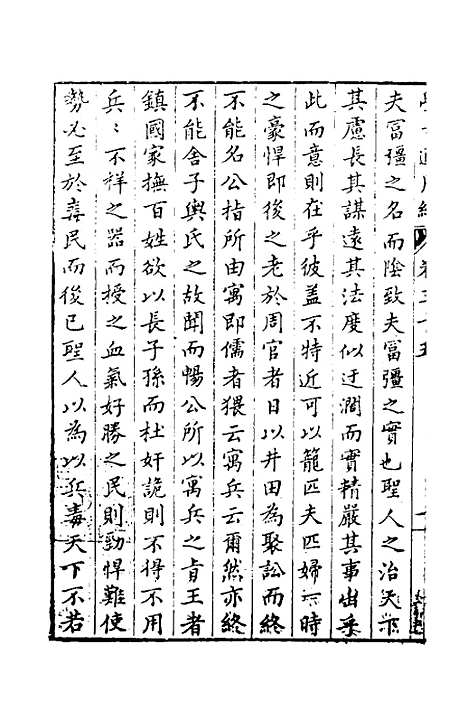 卷三十五
夫富彊之名而陰致夫富彊之實也聖人之治天下
其慮長其謀遠其法度似迂濶而實精嚴其事出乎
此而意則在乎彼盖不特近可以籠匹夫匹婦一時
之豪悍即後之老於周官者日以井田為聚訟而終
不能名公指所由寓即儒者猥云寓兵云爾然亦終
不能舍子輿氏之故聞而暢公所以寓兵之旨王者
鎮國家撫百姓欲以長子孫而杜奸詭則不得不用
兵〻不祥之器而授之血氣好勝之民則勁悍難使
勢必至於毒民而後已聖人以為以兵毒天下不若